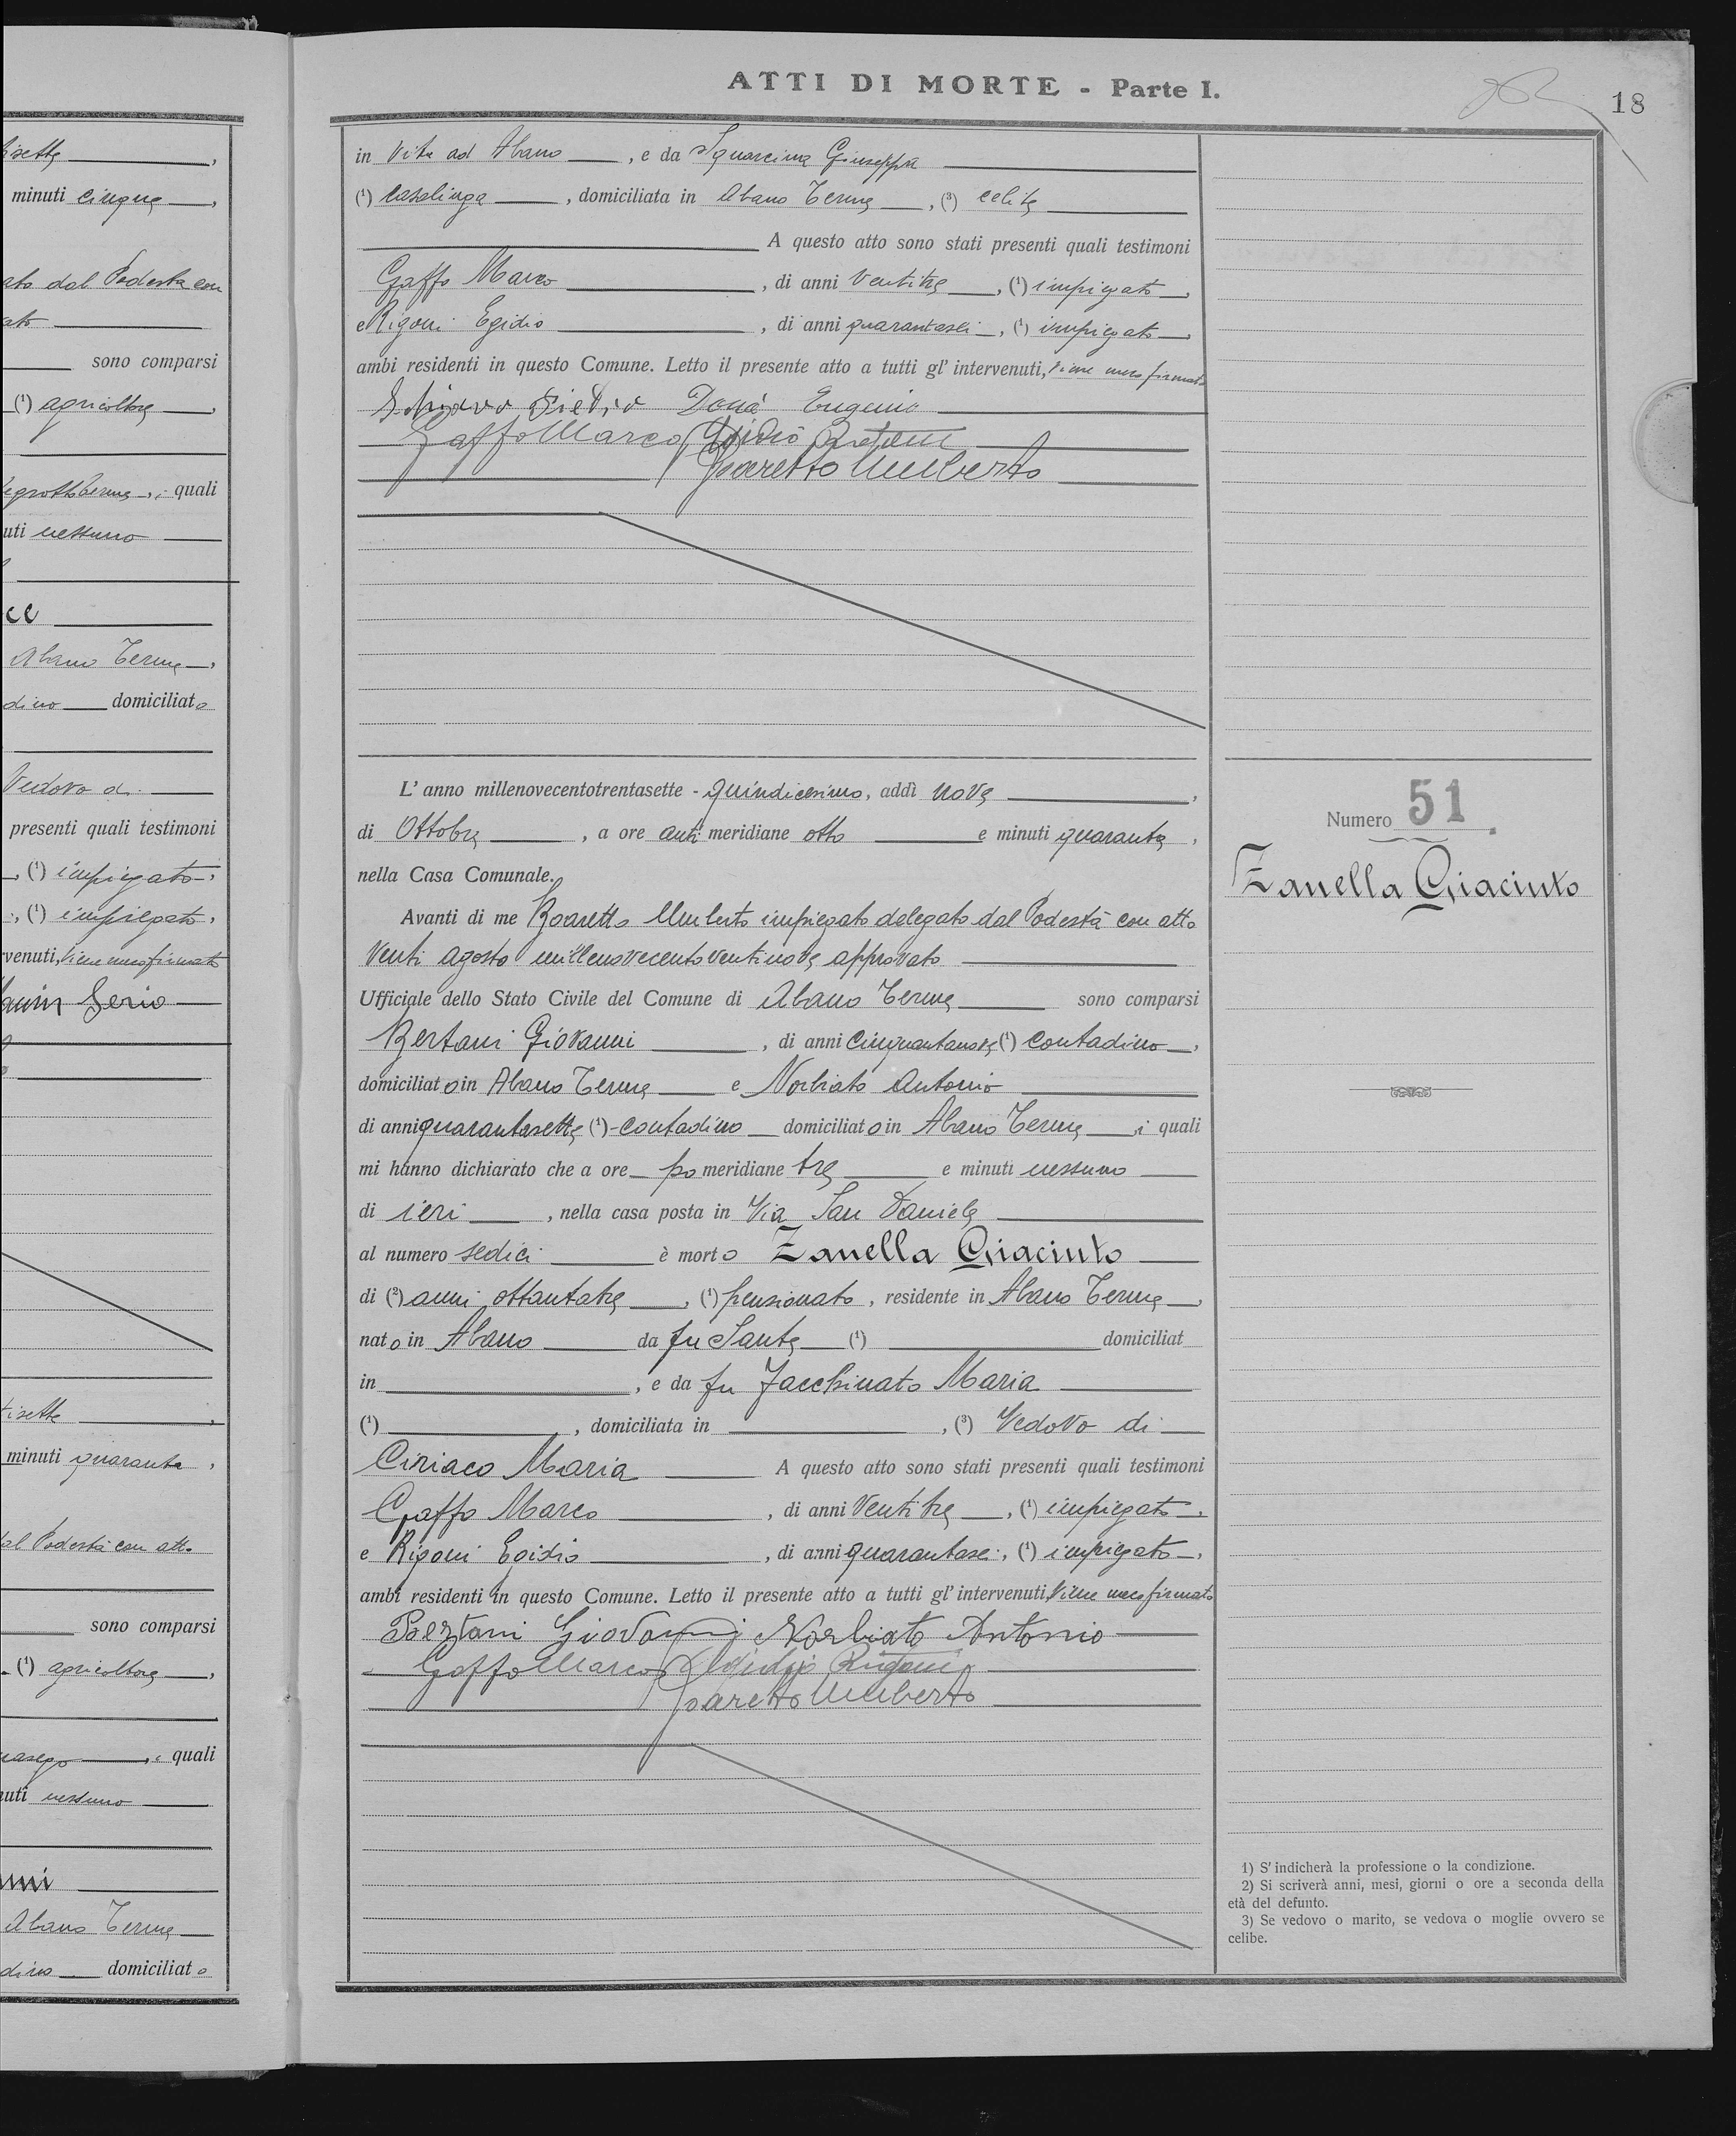 ATTI DI MORTE - Parte I.
18
in vita ad Abano, e da Squarcina Giuseppa
(¹) casalinga, domiciliata in Abano Terme, (³) celibe
A questo atto sono stati presenti quali testimoni
Gaffo Marco, di anni ventitre, (¹) impiegato,
e Rigoni Egidio, di anni quarantasei, (¹) impiegato,
ambi residenti in questo Comune. Letto il presente atto a tutti gl' intervenuti, viene meco firmato
Schiavo Pietro Donà Eugenio
Gaffo Marco Egidio Rigoni
Boaretto Umberto
L' anno millenovecentotrentasette - quindicesimo, addì nove,
di Ottobre, a ore anti meridiane otto e minuti quaranta,
nella Casa Comunale.
Avanti di me Boaretto Umberto impiegato delegato dal Podestà con atto
venti agosto millenovecentoventinove approvato
Ufficiale dello Stato Civile del Comune di Abano Terme sono comparsi
Bertani Giovanni, di anni cinquantanove (¹) contadino,
domiciliato in Abano Terme e Norbiato Antonio
di anni quarantasette (¹) - contadino domiciliato in Abano Terme, i quali
mi hanno dichiarato che a ore po meridiane tre e minuti nessuno
di ieri, nella casa posta in Via San Daniele
al numero sedici è morto Zanella Giacinto
di (²) anni ottantatre, (¹) pensionato, residente in Abano Terme,
nato in Abano da fu Sante (¹) domiciliat
in, e da fu Facchinato Maria
(¹), domiciliata in, (³) Vedovo di
Ciriaco Maria A questo atto sono stati presenti quali testimoni
Gaffo Marco, di anni ventitre, (¹) impiegato,
e Rigoni Egidio, di anni quarantasei, (¹) impiegato,
ambi residenti in questo Comune. Letto il presente atto a tutti gl' intervenuti, viene meco firmato
Bertani Giovanni Norbiato Antonio
Gaffo Marco Egidio Rigoni
Boaretto Umberto
Numero 51.
Zanella Giacinto
1) S' indicherà la professione o la condizione.
2) Si scriverà anni, mesi, giorni o ore a seconda della
età del defunto.
3) Se vedovo o marito, se vedova o moglie ovvero se
celibe.
minuti cinque,
ato dal Podestà con
sono comparsi
(¹) agricoltore,
quali
uti nessuno
Abano Terme,
dino domiciliato
Vedovo di
presenti quali testimoni
, (¹) impiegato,
, (¹) impiegato,
rvenuti, viene meco firmato
Serio
minuti quaranta,
al Podestà con atto
sono comparsi
(¹) agricoltore,
quali
nuti nessuno
Abano Terme
dino domiciliato